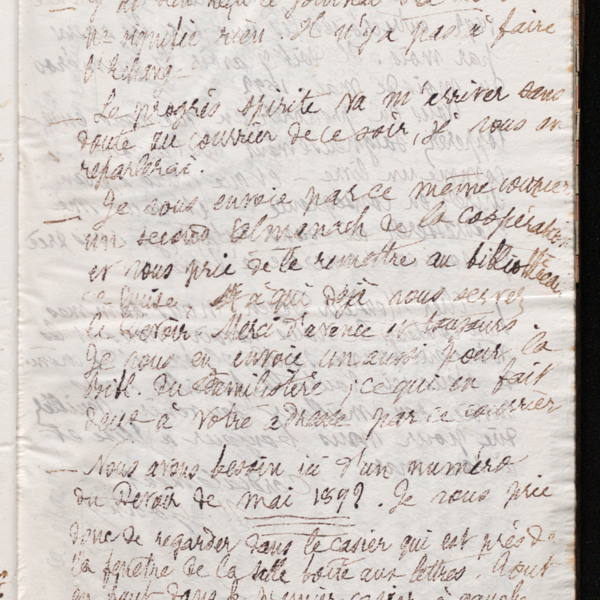 ne signifie rien. Il n'y a pas à faire
d'échange
Le progrès spirite va m'arriver sans
doute au courrier de ce soir, je vous en
reparlerai.
— Je vous envoie par ce même courrier
un second Almanach de la coopération
et vous prie de le remettre au bibliothécaire
de Guise à qui déjà vous servez
le Devoir. Merci d'avance et toujours
Je vous en envoie un aussi pour la
bibl. du Familistère; ce qui en fait
deux à votre adresse par ce courrier
— Nous avons besoin ici d'un numéro
du Devoir de mai 1892. Je vous prie
donc de regarder dans le casier qui est près de
la fenêtre de la salle boîte aux lettres. Tout
en haut dans le premier casier à gauche